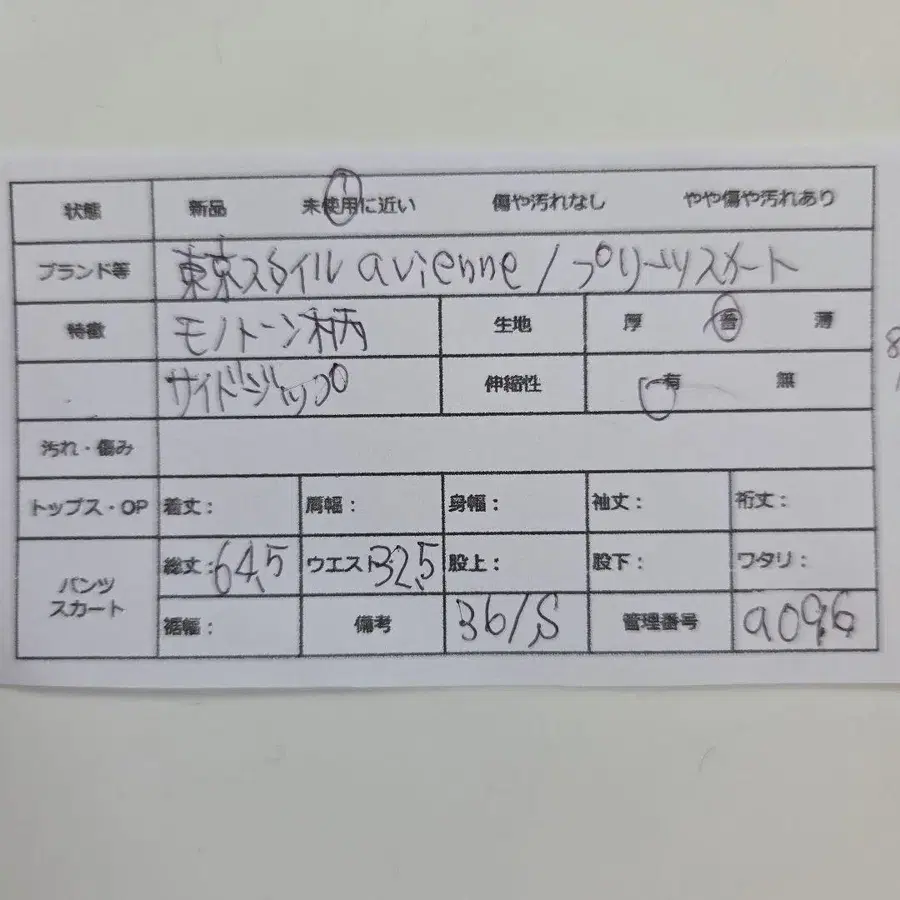 状態 新品 未使用に近い 傷や汚れなし やや傷や汚れあり
ブランド等 東京スタイル avienne / プリーツスカート
特徴 モノトーン柄 生地 厚 普 薄
サイドジップ 伸縮性 有 無
汚れ・傷み
トップス・OP 着丈: 肩幅: 身幅: 袖丈: 裄丈:
パンツ スカート 総丈:64.5 ウエスト32.5 股上: 股下: ワタリ:
裾幅: 備考 36/S 管理番号 a096